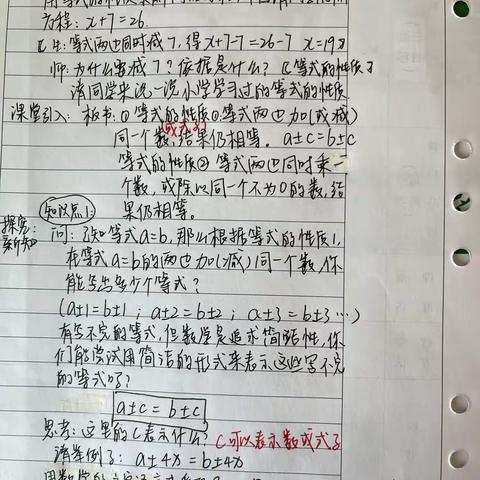 方程: x+7=26.
生: 等式两边同时减7, 得 x+7-7=26-7 x=19
师: 为什么要减7? 依据是什么? 【等式的性质】
请同学来说一说小学学习过的等式的性质
课堂引入: 板书: ①等式的性质① 等式两边加(或减)
同一个数, 结果仍相等. a±c=b±c
(或式子)
等式的性质② 等式两边同时乘一
个数, 或除以同一个不为0的数, 结
果仍相等.
知识点1:
探究新知
问: 已知等式a=b, 那么根据等式的性质1,
在等式a=b的两边加(减)同一个数, 你
能写出多少个等式?
(a±1=b±1; a±2=b±2; a±3=b±3…)
有写不完的等式, 但数学是追求简洁性, 你
们能尝试用简洁的形式来表示这些写不完
的等式吗?
a±c=b±c
思考: 这里的C表示什么? C可以表示数或式子
请举例子: a±4x=b±4x